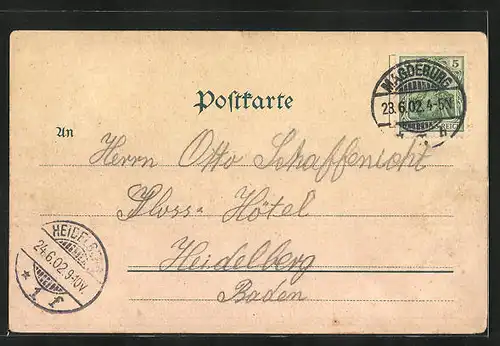 5
MAGDEBURG
23.6.02.4-5V.
REICH
Postkarte
An
Herrn Otto Schaffenicht
Schloss-Hôtel
Heidelberg
Baden
HEIDELBERG
24.6.02.9-10V.
* 1. f